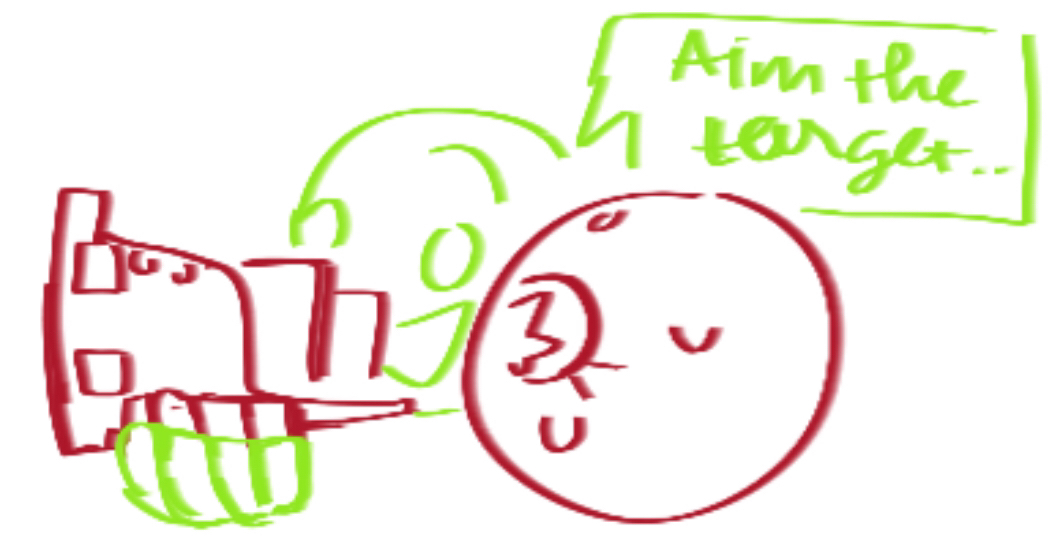 Aim the
target..